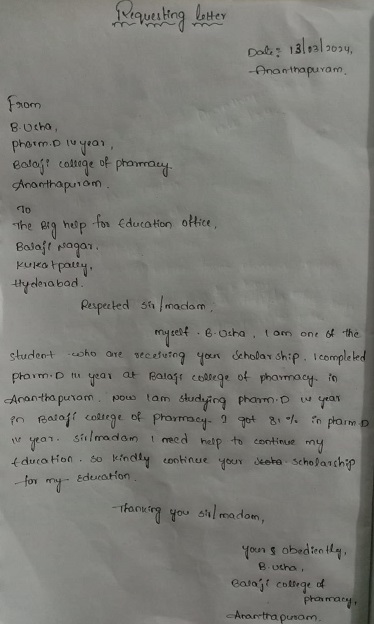 Requesting letter
Date: 13/03/2024,
Ananthapuram.
From
B.Usha,
pharm.D IV year,
Balaji college of pharmacy.
Ananthapuram.
To
The Big help for Education office,
Balaji Nagar,
Kukatpally,
Hyderabad.
Respected sir/madam.
myself B.Usha, I am one of the
student who are receiving your scholarship. I completed
pharm.D III year at Balaji college of pharmacy in
Ananthapuram. Now I am studying pharm.D IV year
in Balaji college of pharmacy. I got 81% in pharm.D
year. sir/madam I need help to continue my
Education. so kindly continue your scholarship
for my Education.
Thanking you sir/madam,
yours obediently,
B.Usha,
Balaji college of
pharmacy,
Ananthapuram.